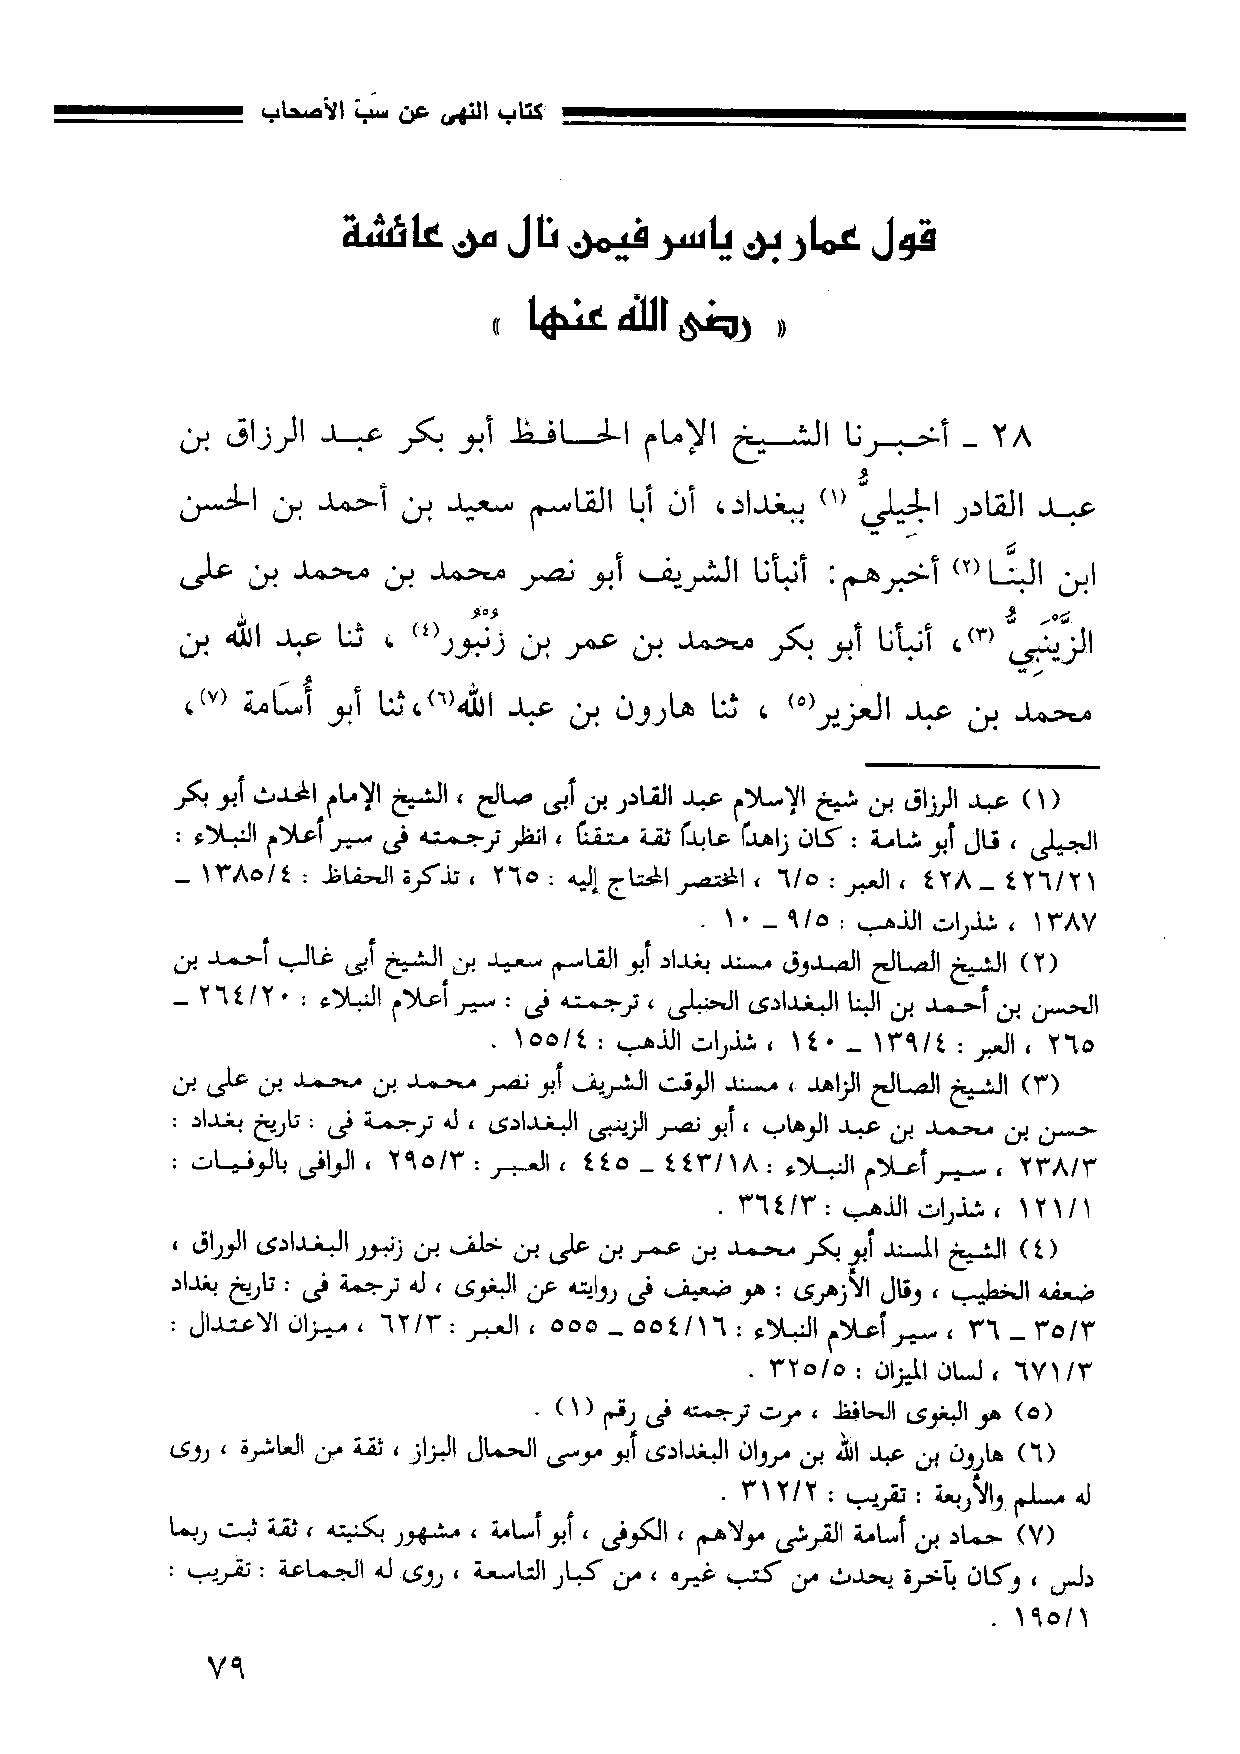 كتاب النهى عن سَبّ الأصحاب
قول عمار بن ياسر فيمن نال من عائشة
« رضى الله عنها »
٢٨ - أخبرنا الشيخ الإمام الحافظ أبو بكر عبد الرزاق بن
عبد القادر الجِيليُّ (١) ببغداد، أن أبا القاسم سعيد بن أحمد بن الحسن
ابن البنَّا (٢) أخبرهم: أنبأنا الشريف أبو نصر محمد بن محمد بن على
الزَّيْنَبِيُّ (٣)، أنبأنا أبو بكر محمد بن عمر بن زُنْبُور(٤) ، ثنا عبد الله بن
محمد بن عبد العزيز(٥) ، ثنا هارون بن عبد الله(٦)،ثنا أبو أُسَامة (٧)،
(١) عبد الرزاق بن شيخ الإسلام عبد القادر بن أبى صالح ، الشيخ الإمام المحدث أبو بكر
الجيلي ، قال أبو شامة : كان زاهداً عابداً ثقة متقناً ، انظر ترجمته فى سير أعلام النبلاء :
٤٢٦/٢١ - ٤٢٨ ، العبر : ٦/٥ ، المختصر المحتاج إليه : ٢٦٥ ، تذكرة الحفاظ : ١٣٨٥/٤ -
١٣٨٧ ، شذرات الذهب : ٩/٥ - ١٠ .
(٢) الشيخ الصالح الصدوق مسند بغداد أبو القاسم سعيد بن الشيخ أبى غالب أحمد بن
الحسن بن أحمد بن البنا البغدادى الحنبلى ، ترجمته فى : سير أعلام النبلاء : ٢٦٤/٢٠ -
٢٦٥ ، العبر : ١٣٩/٤ - ١٤٠ ، شذرات الذهب : ١٥٥/٤ .
(٣) الشيخ الصالح الزاهد ، مسند الوقت الشريف أبو نصر محمد بن محمد بن على بن
حسن بن محمد بن عبد الوهاب ، أبو نصر الزينبى البغدادى ، له ترجمة فى : تاريخ بغداد :
٢٣٨/٣ ، سير أعلام النبلاء : ٤٤٣/١٨ - ٤٤٥ ، العبر : ٢٩٥/٣ ، الوافى بالوفيات :
١٢١/١ ، شذرات الذهب : ٣٦٤/٣ .
(٤) الشيخ المسند أبو بكر محمد بن عمر بن على بن خلف بن زنبور البغدادى الوراق ،
ضعفه الخطيب ، وقال الأزهرى : هو ضعيف فى روايته عن البغوى ، له ترجمة فى : تاريخ بغداد
٣٥/٣ - ٣٦ ، سير أعلام النبلاء : ٥٥٤/١٦ - ٥٥٥ ، العبر : ٦٢/٣ ، ميزان الاعتدال :
٦٧١/٣ ، لسان الميزان : ٣٢٥/٥ .
(٥) هو البغوى الحافظ ، مرت ترجمته فى رقم (١) .
(٦) هارون بن عبد الله بن مروان البغدادى أبو موسى الحمال البزاز ، ثقة من العاشرة ، روى
له مسلم والأربعة : تقريب : ٣١٢/٢ .
(٧) حماد بن أسامة القرشي مولاهم ، الكوفى ، أبو أسامة ، مشهور بكنيته ، ثقة ثبت ربما
دلس ، وكان بآخرة يحدث من كتب غيره ، من كبار التاسعة ، روى له الجماعة : تقريب :
١٩٥/١ .
٧٩